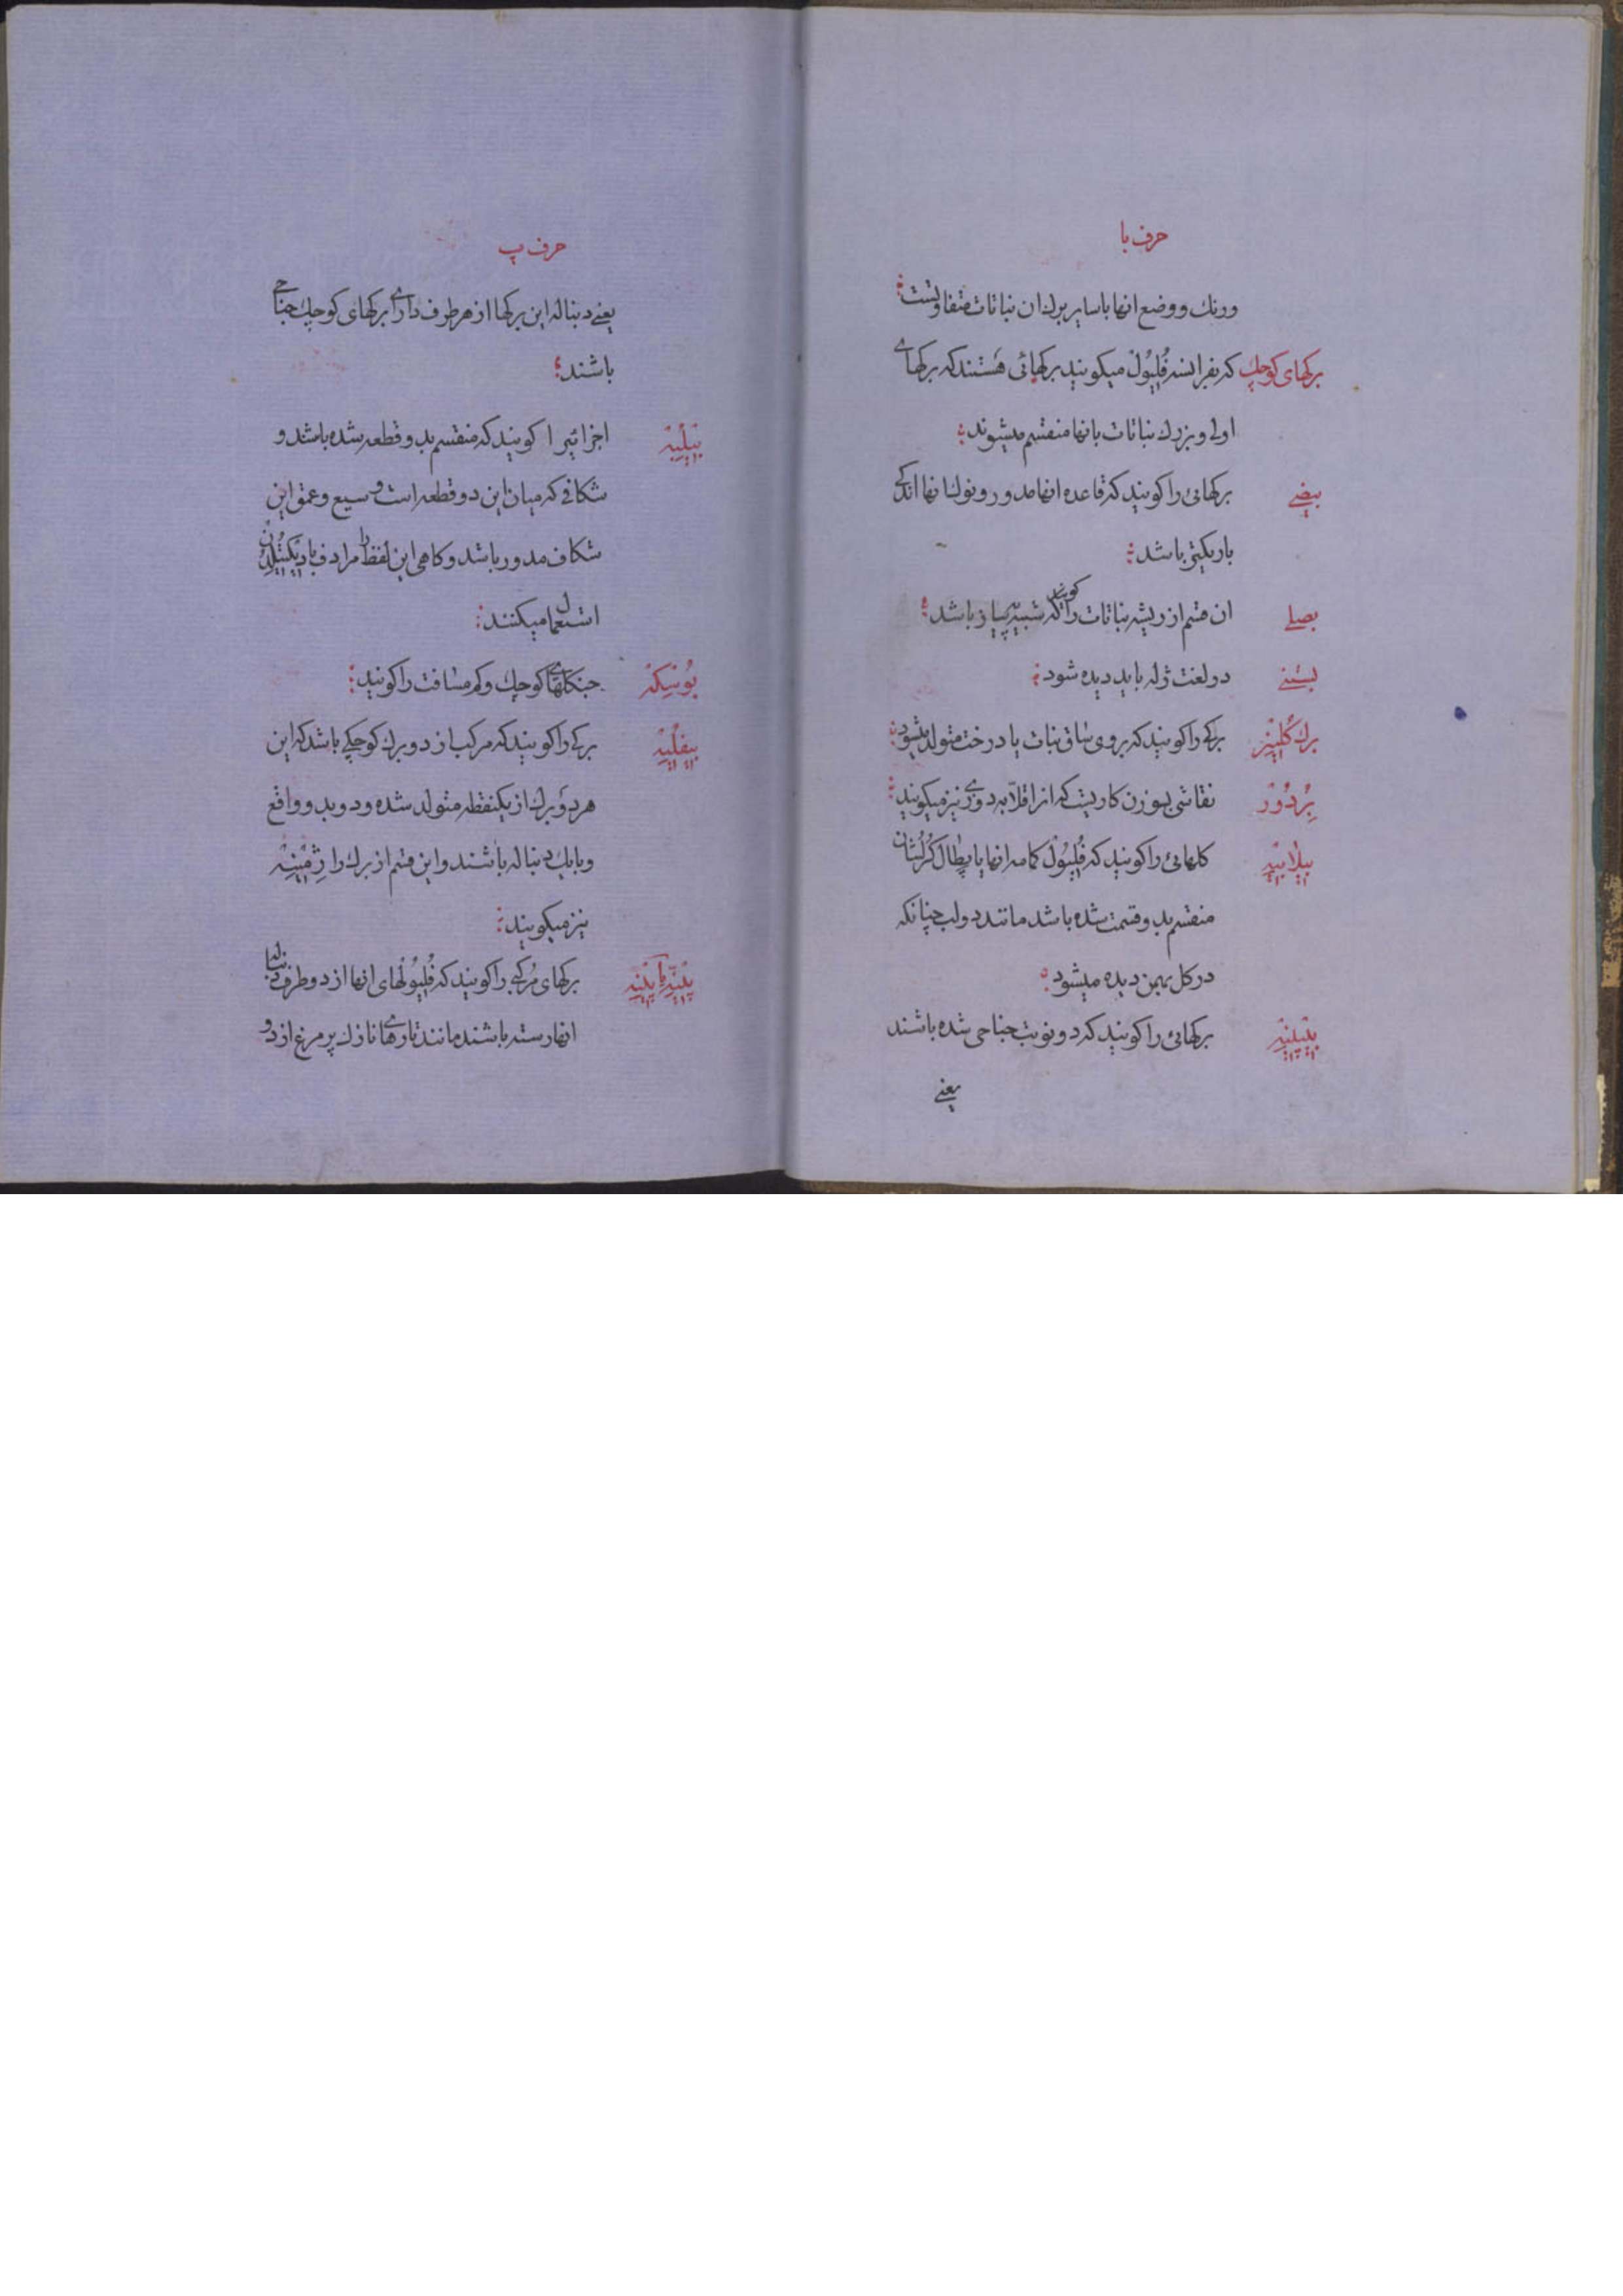 حرف با
ورنك ووضع انها باسایر برك ان نباتات متفاوتست
برکهای کوچك که بفرانسه فُلیُولْ میکویند برکهائی هَستند که برکهاے
اولی وبزرك نباتات بانها منقسم میشوند
بیضے برکهائی را کویند که قاعده انها مدور ونوك انها اندکے
باریکتر باشد
بصلے ان قسم از ریشه نباتات را کویند که شبیه بپیاز باشد
بستنے در لغت ژله باید دیده شود
برك کُلینر برکے را کویند که بروی ساق نبات یا درخت متولد میشود
بِرُدُوْرْ نقاشی بسوزن کاریست که انرا قلاّبه دوزے نیز میکویند
بیلابیه کلهائی را کویند که فُلیُوْل کاسه انها یا پطال کُرُلشان
منقسم بدو قسمت شده باشد مانند دو لب چنانکه
در کل بهمن دیده میشود
بیپنّه برکهائی را کویند که دو نوبت جناحی شده باشند
یعنے
حرف پ
یعنے دنباله این برکها از هر طرف داراے برکهای کوچك جناحے
باشند
بیلبه اجزائیرا کویند که منقسم بدو قطعه شده باشد و
شکافے که میان این دو قطعه است وسیع وعمق این
شکاف مدور باشد وکاهی این لفظ را مرادف با
استعمال میکنند
بُوسْکه جنکلهاے کوچك وکم مسافت را کویند
بیفلیه برکے را کویند که مرکب از دو برك کوچکے باشد که این
هر دو برك از یکنقطه متولد شده ودوبدو واقع
وبایك دنباله باشند واین قسم از برك را ژمینه
نیز میکویند
پنّه یا پینّه برکهای مُرکبے را کویند که فُلیُولْهای انها از دو طرف دنباله
انها رسته باشند مانند تارهاے نازك پر مرغ از دو